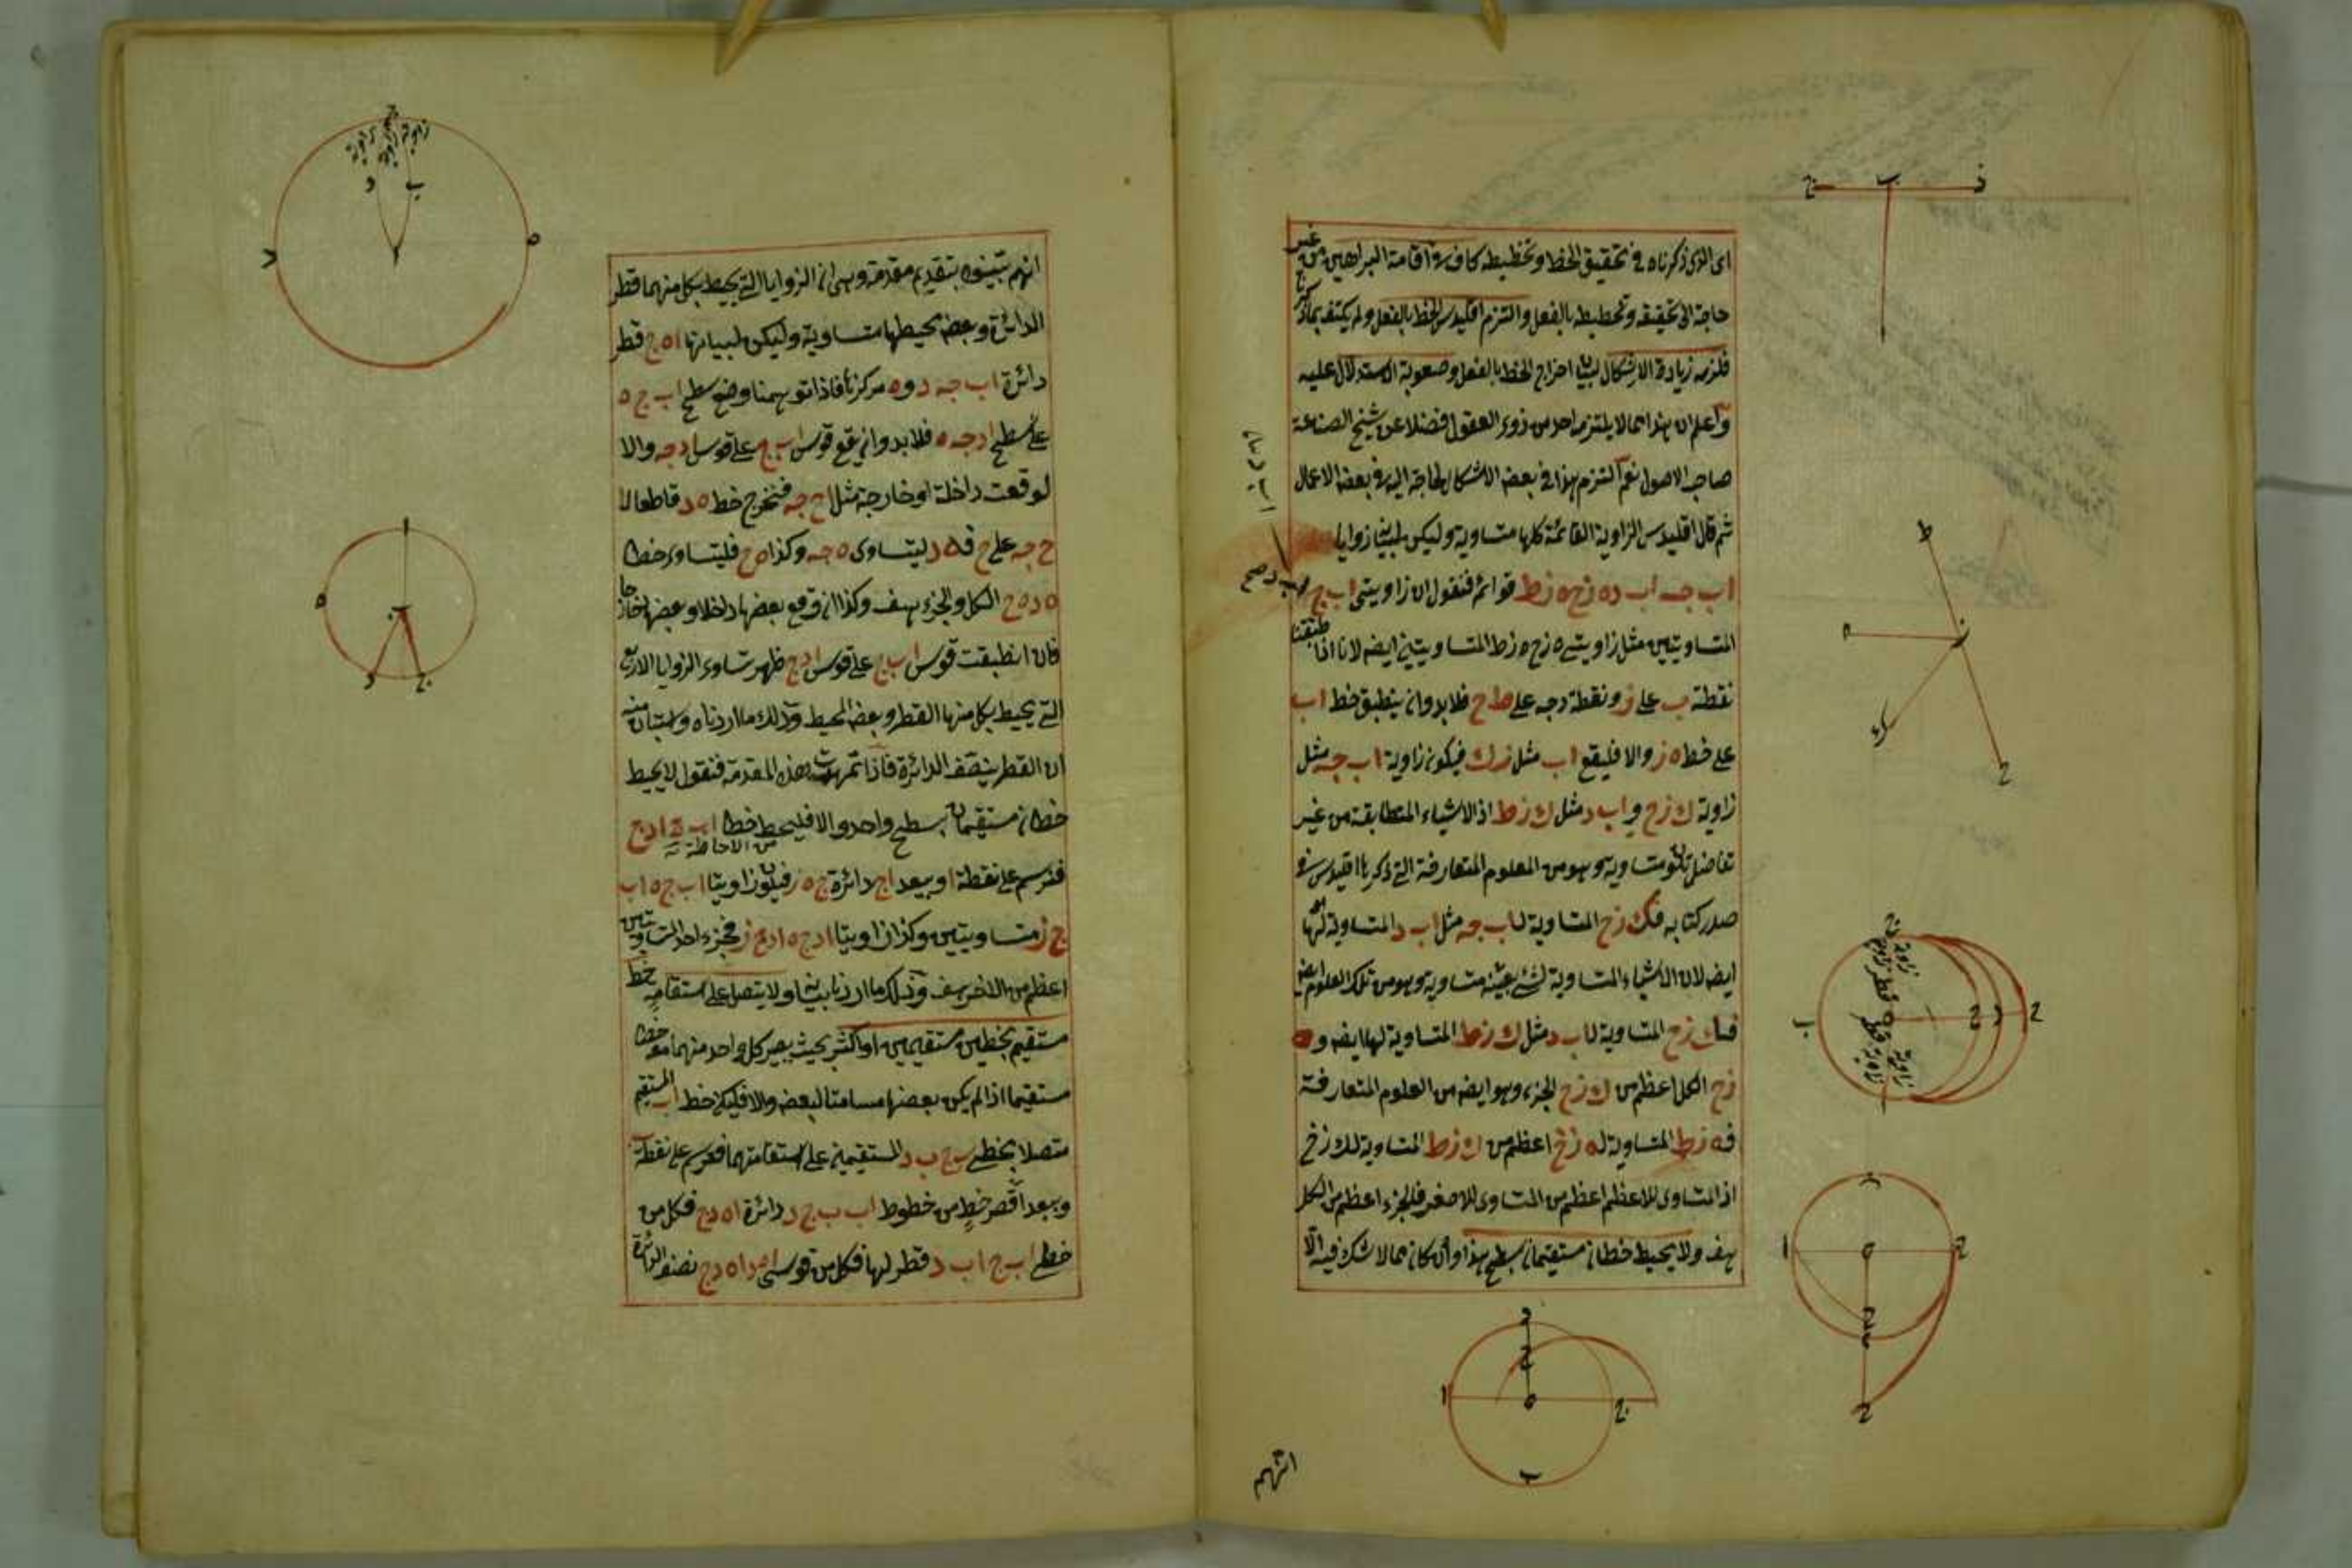 اى الذى ذكرناه فى تحقيق الخط وتخطيطه كاف فى اقامة البراهين من غير
حاجة الى تحقيقه وتخطيطه بالفعل والتزم اقليدس الخط بالفعل ولم يكتف بما ذكرنا
فلزمه زيادة الاشكال لبيان اخراج الخط بالفعل وصعوبة الاستدلال عليه
واعلم ان هذا مما لا يلتزمه احد من ذوى العقول فضلا عن شيخ الصناعة
صاحب الاصول نعم التزم هذا فى بعض الاشكال لحاجة اليه فى بعض الاعمال
ثم قال اقليدس الزاوية القائمة كلها متساوية وليكن لبيانه زوايا
اب جه اب د ه زح ه زط قوائم فنقول ان زاويتى اب ج
المتساويتين مثل زاويتى ه زح ه زط المتساويتين ايضه لانا اذا طبقنا
نقطة ب على ز ونقطة د جه على ط ح فلا بد وان ينطبق خط اب
على خط ه ز والا فليقع اب مثل زك فيكون زاوية اب جه مثل
زاوية ك زح و اب د مثل ك زط اذ الاشياء المتطابقة من غير
تفاضل تكون متساوية وهو من العلوم المتعارفة التى ذكرها اقليدس فى
صدر كتابه فك زح المتساوية لاب جه مثل اب د المتساوية لها
ايضه لان الاشياء المتساوية لشئ بعينه متساوية وهو من تلك العلوم ايضه
فك زح المتساوية لاب د مثل ك زط المتساوية لها ايضه و ه
زح الكل اعظم من ك زح الجزء وهو ايضه من العلوم المتعارفة
فه زط المتساوية له زح اعظم من ك زط المتساوية لك زح
اذ المتساوى للاعظم اعظم من المتساوى للاصغر فالجزء اعظم من الكل
هف ولا يحيط خطان مستقيمان بسطح هذا وان كان مما لا شك فيه الا
انهم
انهم يتبينوه بتقديم مقدمة وهى ان الزوايا التى يحيط بكل منهما قطر
الدائرة وبعض محيطها متساوية وليكن لبيانها اه ج قطر
دائرة اب جه د و ه مركزها فاذا توهمنا وضع سطح اب ج ه
على سطح اد جه ه فلا بد وان يقع قوس اب ج على قوس اد جه والا
لوقعت داخلة او خارجة مثل اح جه فنخرج خط ه د قاطعا لا
ح جه على ح فه د ليتساوى ه جه وكذا ه ح فليتساوى خطا
ه د ه ح الكل والجزء هف وكذا ان وقع بعضها داخلا وبعضها خارجا
فان انطبقت قوس اب ج على قوس اد ج ظهر تساوى الزوايا الاربع
التى يحيط بكل منها القطر وبعض المحيط وذلك ما اردناه واستبان منه
ان القطر ينصف الدائرة فاذا تمهدت هذه المقدمة فنقول لا يحيط
خطان مستقيمان بسطح واحد والا فليحيط خطا اب ج اد ج
من الاحاطة
فنرسم على نقطة ا وببعد اج دائرة ج ه ز فيكون زاويتا اب ج ه اب
ج ز متساويتين وكذا زاويتا اد ج ه اد ج ز فجزء احد المتساويتين
اعظم من الاخر هف وذلك ما اردنا بيانه ولا يتصل على استقامة خط
مستقيم بخطين مستقيمين او اكثر بحيث يصير كل واحد منهما معه خطا
مستقيما اذا لم يكن بعضها مسامتا لبعض والا فليكن خط اب المستقيم
متصلا بخطى ب ج ب د المستقيمين على استقامتهما فنرسم على نقطة ب
وببعد اقصر خط من خطوط اب ب ج ب د دائرة اه د ج فكل من
خطى اب ج اب د قطر لها فكل من قوسى اه د اه د ج نصف الدائرة